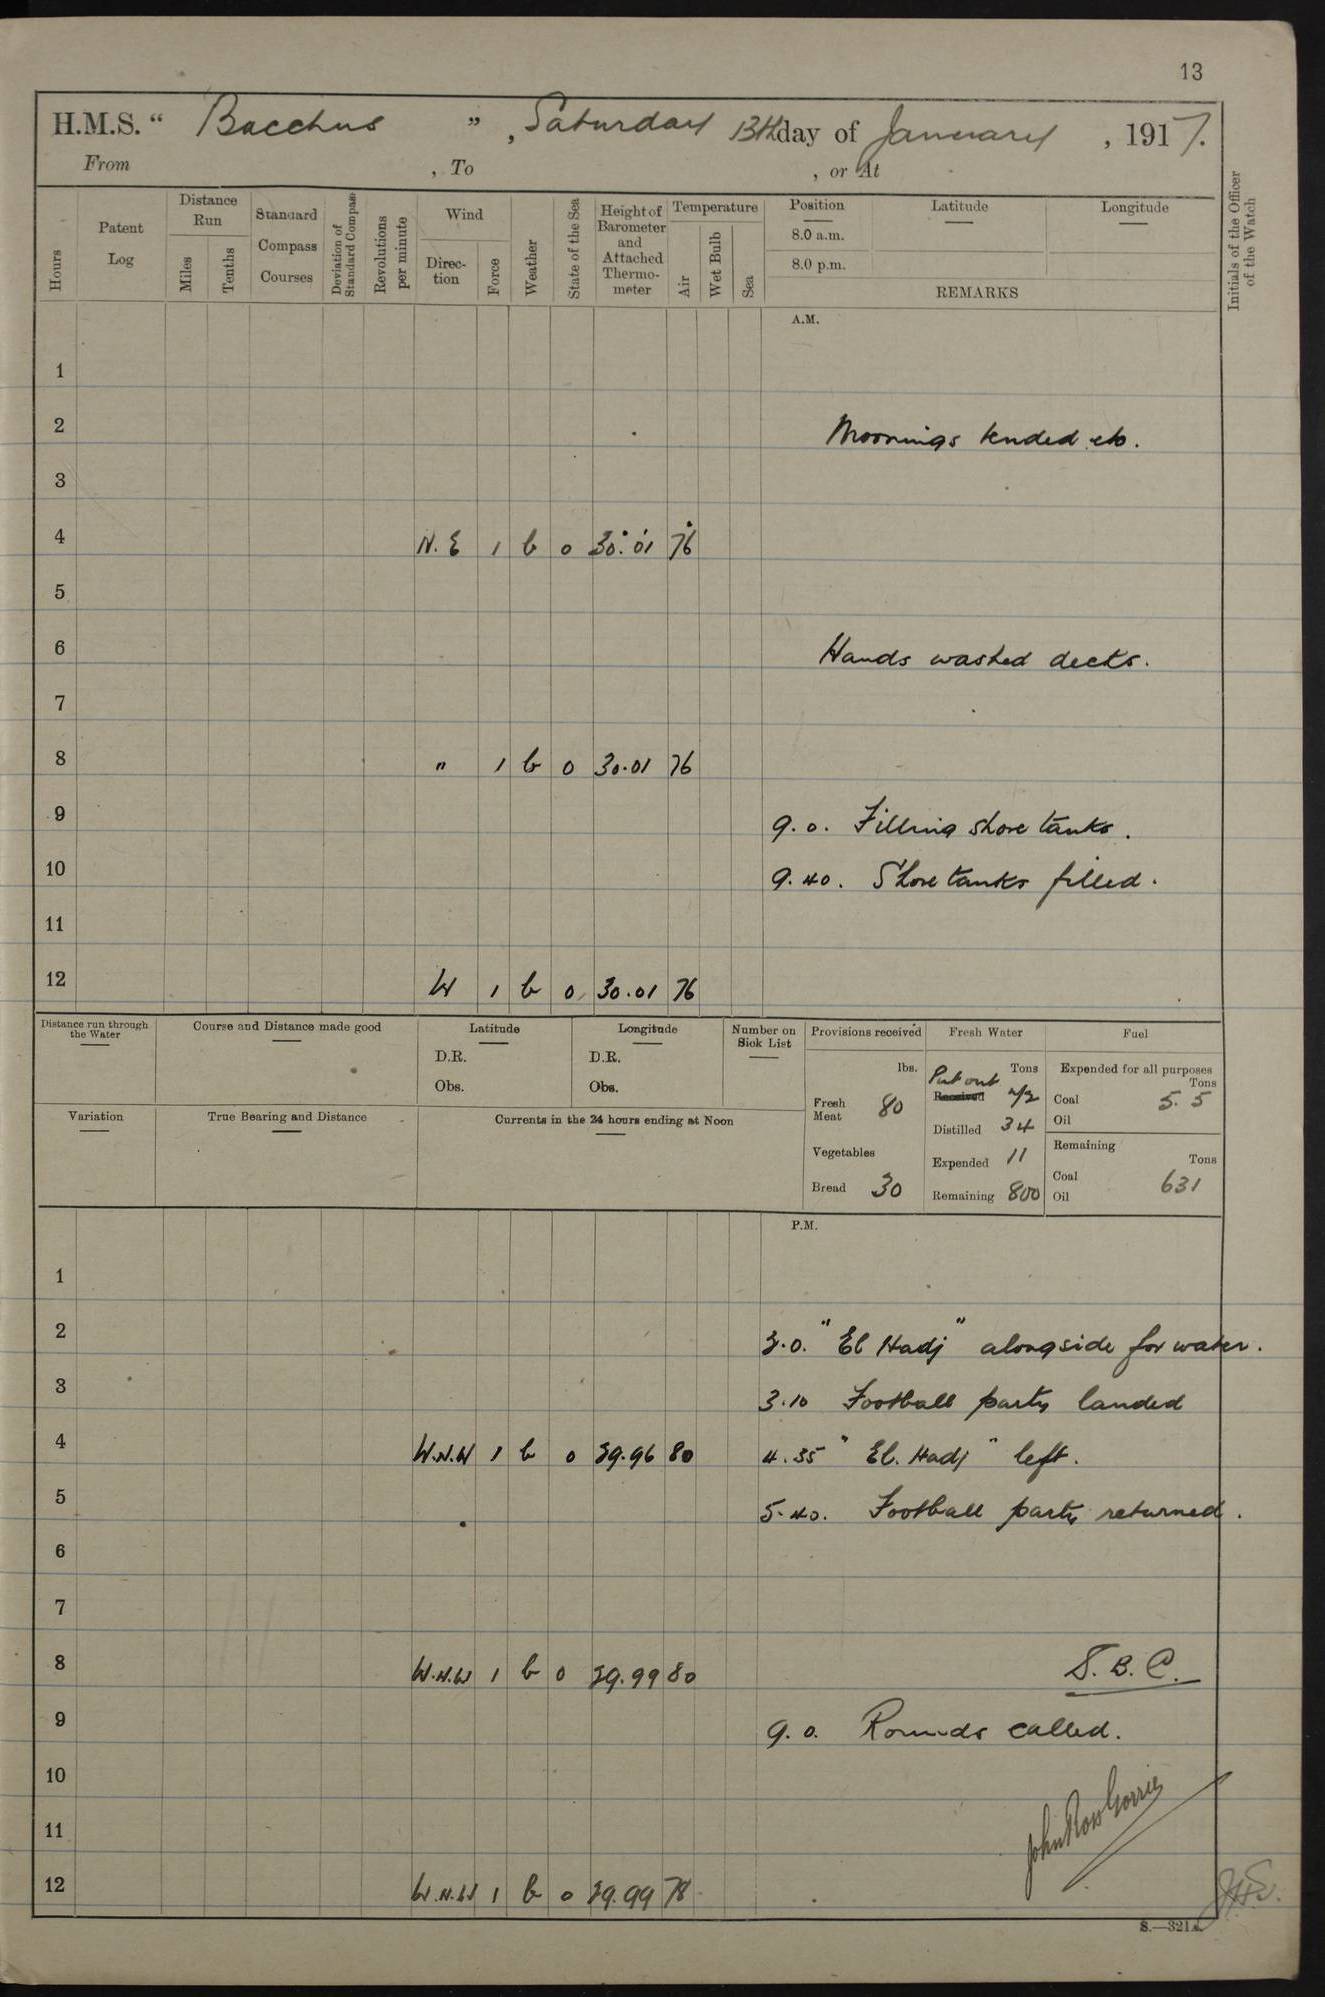 13
H.M.S. “ Bacchus ” , Saturday 13th day of January , 1917.
From , To , or At
Hours
Patent Log
Distance Run
Miles
Tenths
Standard Compass Courses
Deviation of Standard Compass
Revolutions per minute
Wind
Direction
Force
Weather
State of the Sea
Height of Barometer and Attached Thermometer
Temperature
Air
Wet Bulb
Sea
Position
8.0 a.m.
8.0 p.m.
Latitude
Longitude
REMARKS
Initials of the Officer of the Watch
A.M.
1
2 Moorings tended etc.
3
4 N.E 1 b 0 30.01 76
5
6 Hands washed decks.
7
8 " 1 b 0 30.01 76
9 9.0. Filling shore tanks.
10 9.40. Shore tanks filled.
11
12 W 1 b 0 30.01 76
Distance run through the Water
Course and Distance made good
Latitude
D.R.
Obs.
Longitude
D.R.
Obs.
Number on Sick List
Provisions received
lbs.
Fresh Meat 80
Vegetables
Bread 30
Fresh Water
Tons
Put out
Received
Distilled 34
Expended 11
Remaining 800
Fuel
Expended for all purposes
Tons
Coal 5.5
Oil
Remaining
Tons
Coal 631
Oil
Variation
True Bearing and Distance
Currents in the 24 hours ending at Noon
P.M.
1
2 2.0. "El Hadj" alongside for water.
3 3.10 Football party landed
4 W.N.W 1 b 0 29.96 80 4.35 "El. Hadj" left.
5 5.40. Football party returned.
6
7
8 W.N.W 1 b 0 29.99 80 S.B.C.
9 9.0. Rounds called.
10
11 John Ross Gorrie
12 W.N.W 1 b 0 29.99 78
S.—321